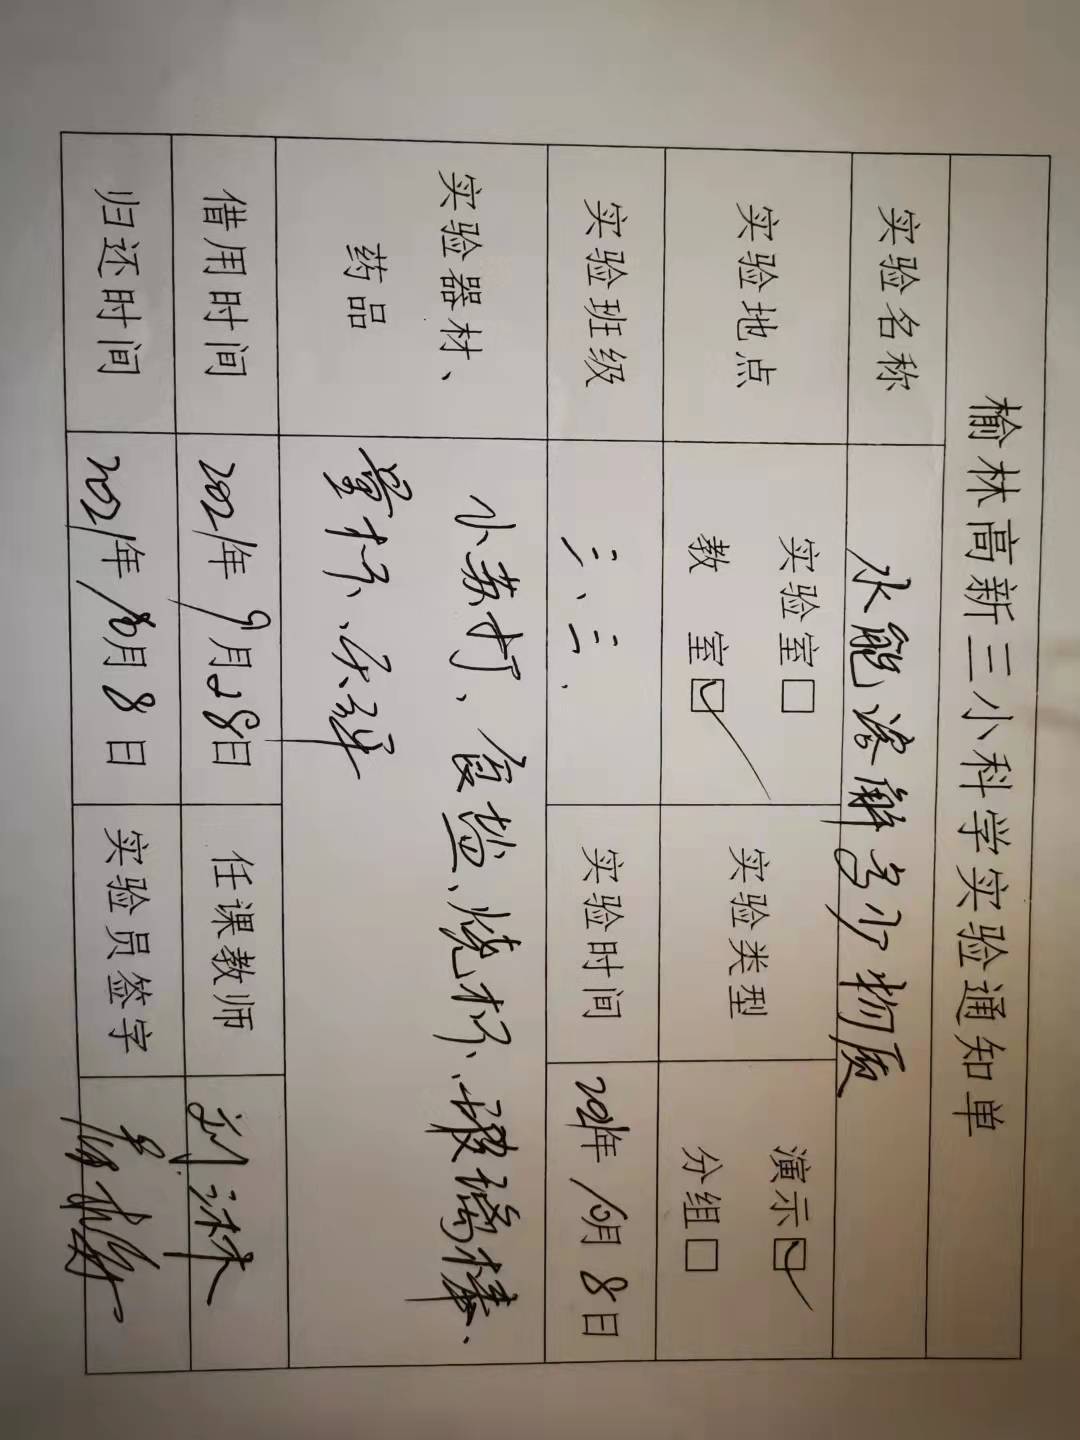 榆林高新三小科学实验通知单
实验名称 水能溶解多少物质
实验地点 实验室□ 教 室☑ 实验类型 演示☑ 分组□
实验班级 三、三. 实验时间 2021年10月8日
实验器材、药品 小苏打、食盐、烧杯、玻璃棒、
量杯、天平
借用时间 2021年9月28日 任课教师 刘
归还时间 2021年10月8日 实验员签字